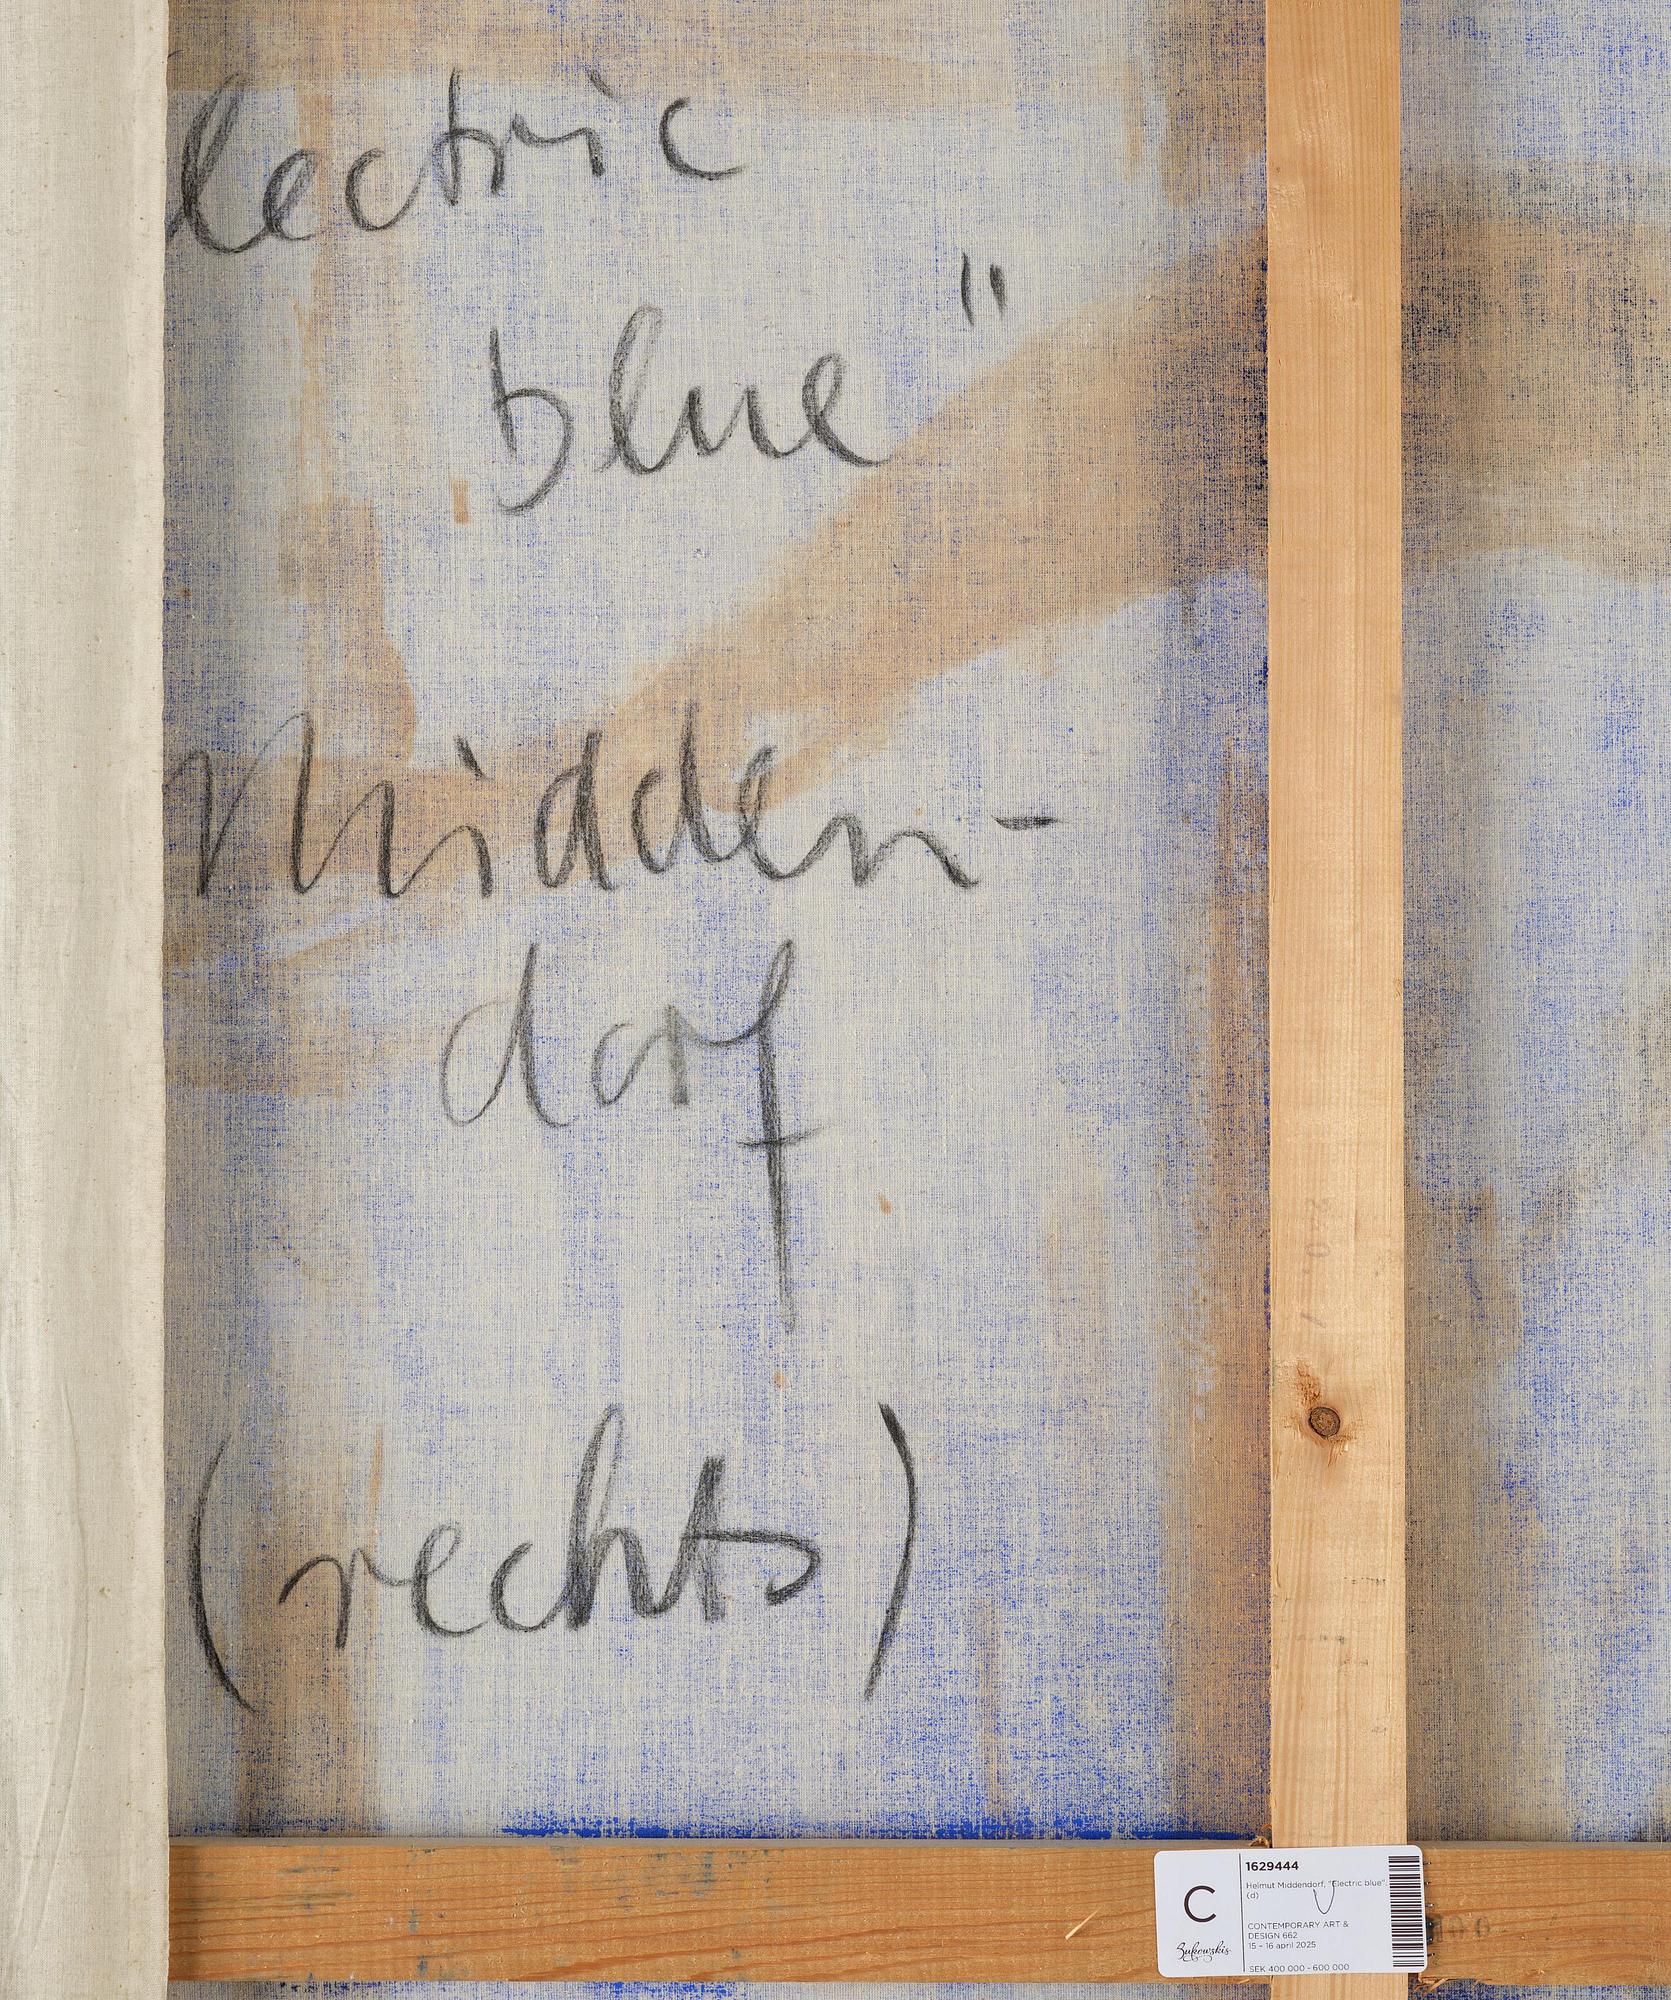 lectric
blue"
Midden-
dorf
(rechts)
C
Bukowskis
1629444
Helmut Middendorf, "Electric blue".
(d)
CONTEMPORARY ART &
DESIGN 662
15 – 16 april 2025
SEK 400 000 - 600 000